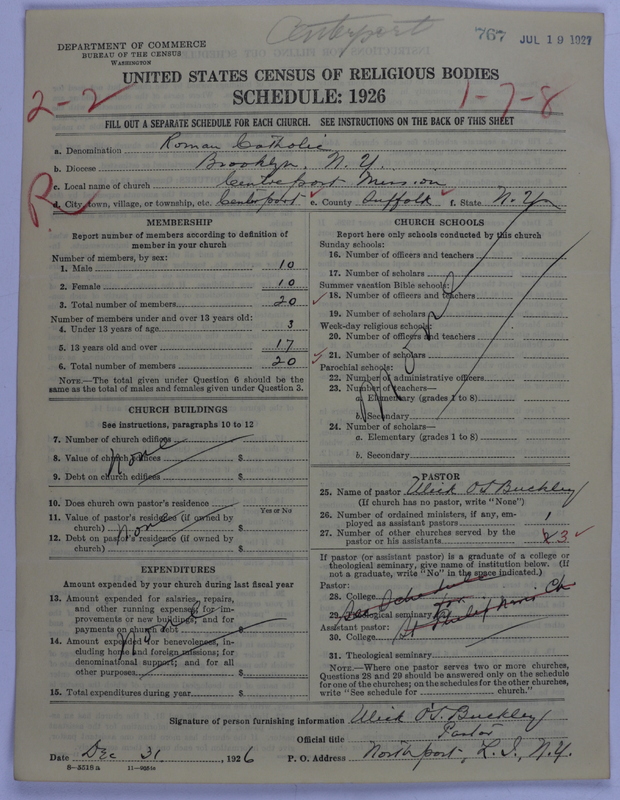 Centerport
767 JUL 19 1927
DEPARTMENT OF COMMERCE
BUREAU OF THE CENSUS
WASHINGTON
UNITED STATES CENSUS OF RELIGIOUS BODIES
SCHEDULE: 1926
2-2
1-7-8
FILL OUT A SEPARATE SCHEDULE FOR EACH CHURCH. SEE INSTRUCTIONS ON THE BACK OF THIS SHEET
a. Denomination Roman Catholic
b. Diocese Brooklyn, N.Y.
c. Local name of church Centreport Mission
R
d. City, town, village, or township, etc. Centerport e. County Suffolk f. State N.Y.
MEMBERSHIP
Report number of members according to definition of
member in your church
Number of members, by sex:
1. Male 10
2. Female 10
3. Total number of members 20
Number of members under and over 13 years old:
4. Under 13 years of age 3
5. 13 years old and over 17
6. Total number of members 20
NOTE.—The total given under Question 6 should be the
same as the total of males and females given under Question 3.
CHURCH BUILDINGS
See instructions, paragraphs 10 to 12
7. Number of church edifices
8. Value of church edifices $
None
9. Debt on church edifices $
10. Does church own pastor's residence
Yes or No
11. Value of pastor's residence (if owned by
church) $
None
12. Debt on pastor's residence (if owned by
church) $
EXPENDITURES
Amount expended by your church during last fiscal year
13. Amount expended for salaries, repairs,
and other running expenses; for im-
provements or new buildings; and for
payments on church debt $
None
14. Amount expended for benevolences, in-
cluding home and foreign missions; for
denominational support; and for all
other purposes $
15. Total expenditures during year $
CHURCH SCHOOLS
Report here only schools conducted by this church
Sunday schools:
16. Number of officers and teachers
17. Number of scholars
Summer vacation Bible schools:
18. Number of officers and teachers
19. Number of scholars
Week-day religious schools:
20. Number of officers and teachers
21. Number of scholars
None
Parochial schools:
22. Number of administrative officers
23. Number of teachers—
a. Elementary (grades 1 to 8)
b. Secondary
24. Number of scholars—
a. Elementary (grades 1 to 8)
b. Secondary
PASTOR
25. Name of pastor Ulick OS Buckley
(If church has no pastor, write "None")
26. Number of ordained ministers, if any, em-
ployed as assistant pastors 1
27. Number of other churches served by the
pastor or his assistants 3
If pastor (or assistant pastor) is a graduate of a college or
theological seminary, give name of institution below. (If
not a graduate, write "No" in the space indicated.)
Pastor:
28. College
See Schedule
29. Theological seminary for
Assistant pastor:
30. College St Philip Neris Ch
31. Theological seminary
NOTE.—Where one pastor serves two or more churches,
Questions 28 and 29 should be answered only on the schedule
for one of the churches; on the schedules for the other churches,
write "See schedule for church."
Signature of person furnishing information Ulick OS. Buckley
Official title Pastor
Date Dec 31, 1926 P. O. Address Northport, L. I., N.Y.
8—5518a